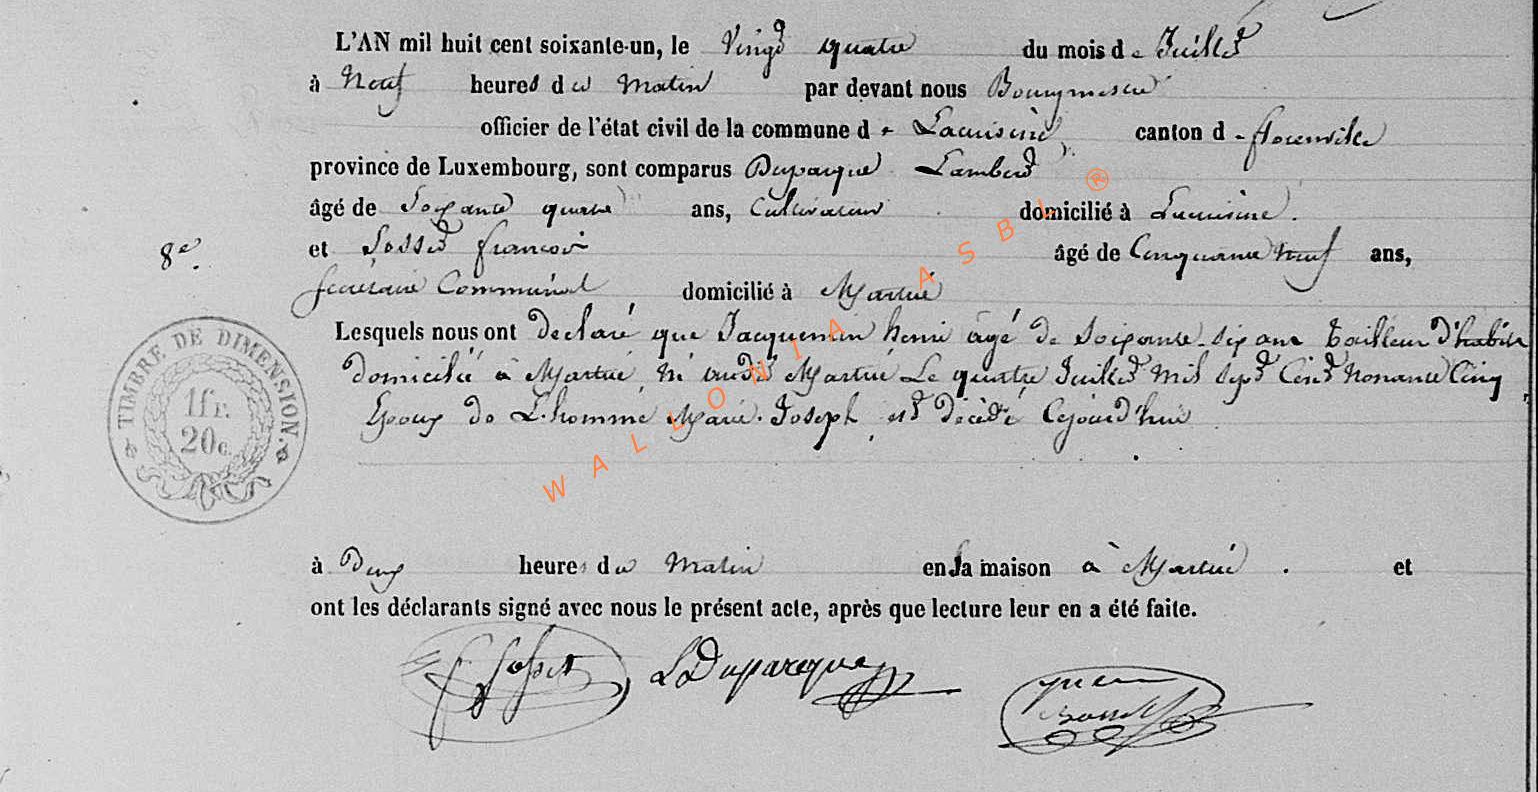 L'AN mil huit cent soixante-un, le Vingt quatre du mois de Juillet
à Neuf heures du Matin par devant nous Bourgmestre
officier de l'état civil de la commune de Lacuisine, canton de florenville
province de Luxembourg, sont comparus Duparque Lambert
âgé de Soixante quatre ans, Cultivateur domicilié à Lacuisine.
8e. et Josset francois âgé de Cinquante neuf ans,
Secrétaire Communal domicilié à Martué
Lesquels nous ont déclaré que Jacquemin henri âgé de Soixante-six ans tailleur d'habits
domicilié à Martué, né audit Martué Le quatre Juillet Mil Sept Cent Nonante Cinq
Epoux de L'homme Marie Joseph, est décédé Cejourd'hui
TIMBRE DE DIMENSION.
1 fr.
20 c.
WALLONIA ASBL ®
à Deux heures du Matin en sa maison à Martué . et
ont les déclarants signé avec nous le présent acte, après que lecture leur en a été faite.
LDuparque